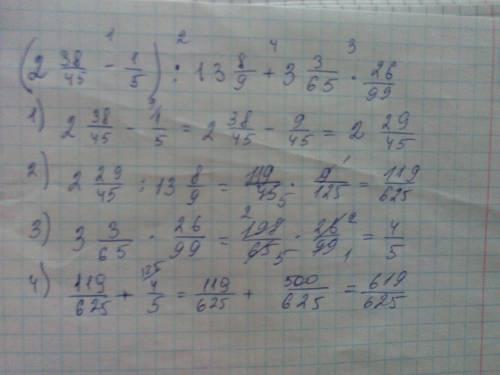 1 2 4 3
(2 38/45 - 1/5) : 13 8/9 + 3 3/65 · 26/99
1) 2 38/45 - 1/5 = 2 38/45 - 9/45 = 2 29/45
2) 2 29/45 : 13 8/9 = 119/45 5 · 9 1/125 = 119/625
3) 3 3/65 · 26/99 = 2 198/65 5 · 26 2/99 1 = 4/5
4) 119/625 + 4 125/5 = 119/625 + 500/625 = 619/625